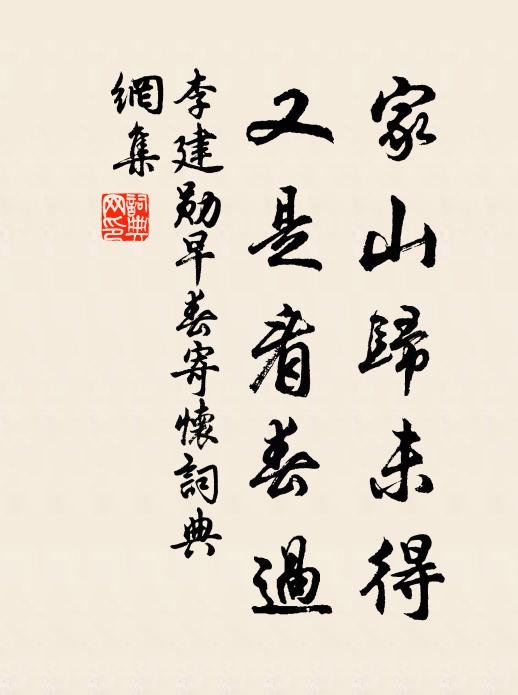 家山歸未得
又是看春過
李建勛早春寄懷詞典
網集
詞典
网印